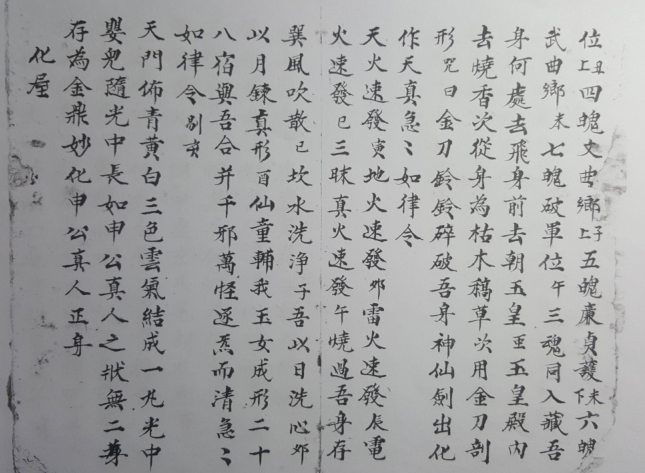 位上丑四魄文曲鄉上子五魄廉貞護下未六魄
武曲鄉未七魄破軍位午三魂同入藏吾
身何處去飛身前去朝玉皇王玉皇殿内
去燒香次從身為枯木稿草次用金刀剖
形咒曰金刀鈴鈴碎破吾身神仙劍出化
作天真急〻如律令
天火速發寅地火速發卯雷火速發辰電
火速發巳三昧真火速發午燒過吾身存
巽風吹散巳坎水洗淨子吾以日洗心卯
以月鍊真形酉仙童輔我玉女成形二十
八宿與吾合并千邪萬怪逐炁而清急〻
如律令剔亥
天門佈青黃白三色雲氣結成一丸光中
嬰兒隨光中長如申公真人之狀無二尊
存為金鼎妙化申公真人正身
化屋